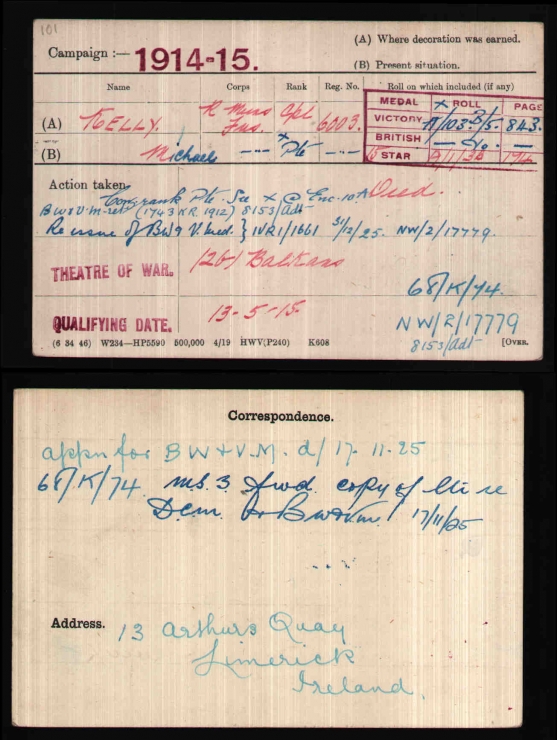 101
(A) Where decoration was earned.
Campaign :— 1914-15.
(B) Present situation.
Name Corps Rank Reg. No. Roll on which included (if any)
MEDAL × ROLL PAGE
(A) KELLY. R Muns Fus. Cpl 6003. VICTORY B/103.B/5. 843.
BRITISH — do. —
(B) Michael —"— × Pte —"— 15 STAR
Action taken
Cong rank Pte. See × @ Enc. 10A Dead.
BW&V.M-ret (1743 KR. 1912) 8153/Adt
Re issue of BW & V. Med. } IVR1/1661 31/12/25. NW/2/17779.
THEATRE OF WAR. (2b) Balkans
68/K/74.
QUALIFYING DATE. 13-5-15.
NW/2/17779
8153/adt
(6 34 46) W234—HP5590 500,000 4/19 HWV(P240) K608 [OVER.
Correspondence.
appn for BW & V.M. d/ 17. 11-25
68/K/74. ms. 3 fwd. copy of re
Dcm. BW&VM 17/11/25
Address. 13 Arthurs Quay
Limerick
Ireland.